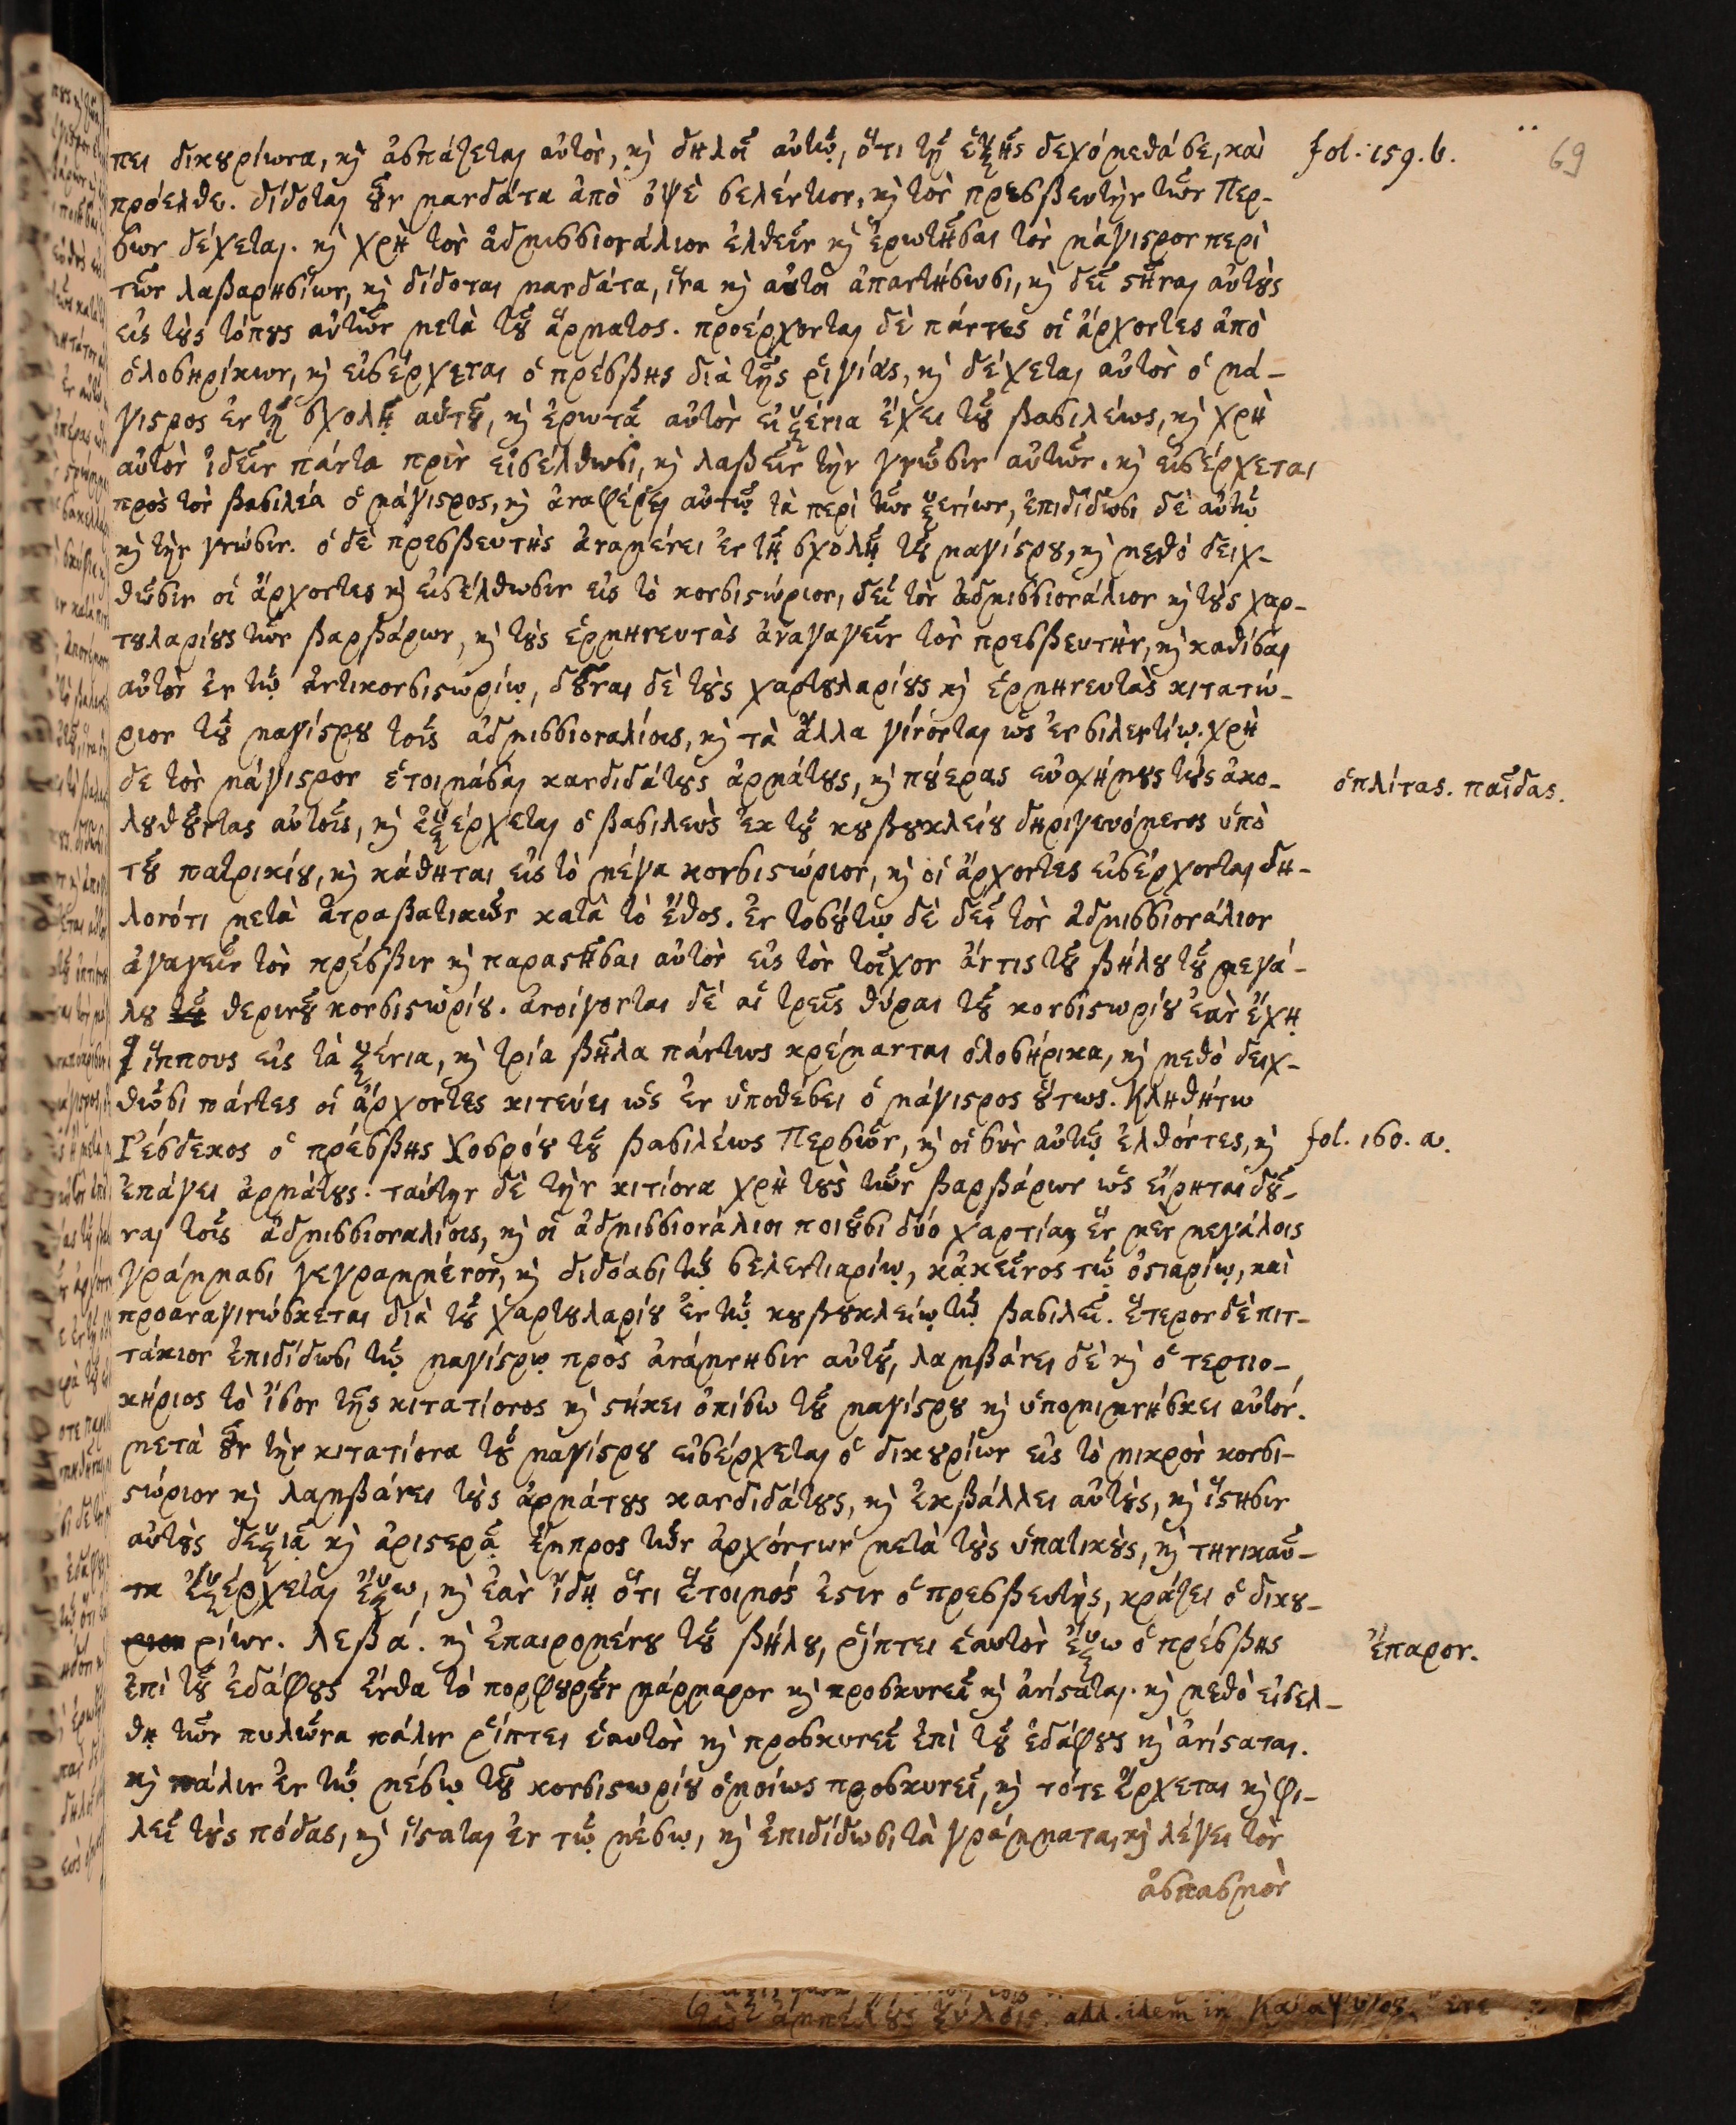 πει δικουρίωνα, κỳ ἀσπάζεται αὐτὸν, κỳ δηλοῖ αὐτῷ, ὅτι τῇ ἑξῆς δεχόμεθά σε, καὶ fol. 159. b. 69
πρόελθε. δίδοται οὖν μανδάτα ἀπὸ ὀψὲ σελέντιον, κỳ τὸν πρεσβευτὴν τῶν Περ-
σῶν δέχεται. κỳ χρὴ τὸν ἀδμισσιονάλιον ἐλθεῖν κỳ ἐρωτῆσαι τὸν μάγιστρον περὶ
τῶν λαβαρησίων, κỳ δίδοται μανδάτα, ἵνα κỳ αὐτοὶ ἀπαντήσωσι, κỳ δεῖ στῆναι αὐτοὺς
εἰς τοὺς τόπους αὐτῶν μετὰ τοῦ ἄρματος. προέρχονται δὲ πάντες οἱ ἄρχοντες ἀπὸ
ὁλοσηρίκων, κỳ εἰσέρχεται ὁ πρέσβης διὰ τῆς ῥιγίας, κỳ δέχεται αὐτὸν ὁ μά-
γιστρος ἐν τῇ σχολῇ αὐτοῦ, κỳ ἐρωτᾷ αὐτὸν εἰ ξένια ἔχει τοῦ βασιλέως, κỳ χρὴ
αὐτὸν ἰδεῖν πάντα πρὶν εἰσέλθωσι, κỳ λαβεῖν τὴν γνῶσιν αὐτῶν. κỳ εἰσέρχεται
πρὸς τὸν βασιλέα ὁ μάγιστρος, κỳ ἀναφέρει αὐτῷ τὰ περὶ τῶν ξενίων, ἐπιδίδωσι δὲ αὐτῷ
κỳ τὴν γνῶσιν. ὁ δὲ πρεσβευτὴς ἀναμένει ἐν τῇ σχολῇ τοῦ μαγίστρου, κỳ μεθὸ δειχ-
θῶσιν οἱ ἄρχοντες κỳ εἰσέλθωσιν εἰς τὸ κονσιστώριον, δεῖ τὸν ἀδμισσιονάλιον κỳ τοὺς χαρ-
τουλαρίους τῶν βαρβάρων, κỳ τοὺς ἑρμηνευτὰς ἀναγαγεῖν τὸν πρεσβευτὴν, κỳ καθίσαι
αὐτὸν ἐν τῷ ἀντικονσιστωρίῳ, δοῦναι δὲ τοὺς χαρτουλαρίους κỳ ἑρμηνευτὰς κιτατώ-
ριον τοῦ μαγίστρου τοῖς ἀδμισσιοναλίοις, κỳ τὰ ἄλλα γίνονται ὡς ἐν σιλεντίῳ. χρὴ
δὲ τὸν μάγιστρον ἑτοιμάσαι κανδιδάτους ἀρμάτους, κỳ πούερας εὐσχήμους τοὺς ἀκο- ὁπλίτας. παῖδας.
λουθοῦντας αὐτοῖς, κỳ ἐξέρχεται ὁ βασιλεὺς ἐκ τοῦ κουβουκλείου δηριγευόμενος ὑπὸ
τοῦ πατρικίου, κỳ κάθηται εἰς τὸ μέγα κονσιστώριον, κỳ οἱ ἄρχοντες εἰσέρχονται δη-
λονότι μετὰ ἀτραβατικῶν κατὰ τὸ ἔθος. ἐν τοσούτῳ δὲ δεῖ τὸν ἀδμισσιονάλιον
ἀγαγεῖν τὸν πρέσβιν κỳ παραστῆσαι αὐτὸν εἰς τὸν τοῖχον ἄντις τοῦ βήλου τοῦ μεγά-
λου θερινοῦ κονσιστωρίου. ἀνοίγονται δὲ αἱ τρεῖς θύραι τοῦ κονσιστωρίου ἐὰν ἔχῃ
ἵππους εἰς τὰ ξένια, κỳ τρία βῆλα πάντως κρέμανται ὁλοσήρικα, κỳ μεθὸ δειχ-
θῶσι πάντες οἱ ἄρχοντες κιτεύει ὡς ἐν ὑποθέσει ὁ μάγιστρος οὕτως. Κληθήτω
Ἰέσδεκος ὁ πρέσβης Χοσρόου τοῦ βασιλέως Περσῶν, κỳ οἱ σὺν αὐτῷ ἐλθόντες, κỳ fol. 160. a.
ἐπάγει ἀρμάτους. ταύτην δὲ τὴν κιτίονα χρὴ τοὺς τῶν βαρβάρων ὡς εἴρηται δοῦ-
ναι τοῖς ἀδμισσιοναλίοις, κỳ οἱ ἀδμισσιονάλιοι ποιοῦσι δύο χαρτία, ἓν μὲν μεγάλοις
γράμμασι γεγραμμένον, κỳ διδόασι τῷ σελεντιαρίῳ, κἀκεῖνος τῷ ὀστιαρίῳ, καὶ
προαναγινώσκεται διὰ τοῦ χαρτουλαρίου ἐν τῷ κουβουκλείῳ τῷ βασιλεῖ. ἕτερον δὲ πιτ-
τάκιον ἐπιδίδωσι τῷ μαγίστρῳ πρὸς ἀνάμνησιν αὐτοῦ, λαμβάνει δὲ κỳ ὁ τερτιο-
κήριος τὸ ἴσον τῆς κιτατίονος κỳ στήκει ὀπίσω τοῦ μαγίστρου κỳ ὑπομιμνήσκει αὐτόν.
μετὰ οὖν τὴν κιτατίονα τοῦ μαγίστρου εἰσέρχεται ὁ δικουρίων εἰς τὸ μικρὸν κονσι-
στώριον κỳ λαμβάνει τοὺς ἀρμάτους κανδιδάτους, κỳ ἐκβάλλει αὐτοὺς, κỳ ἵστησιν
αὐτοὺς δεξιᾷ κỳ ἀριστερᾷ ἔμπρος τῶν ἀρχόντων μετὰ τοὺς ὑπατικοὺς, κỳ τηνικαῦ-
τα ἐξέρχεται ἔξω, κỳ ἐὰν ἴδῃ ὅτι ἕτοιμός ἐστιν ὁ πρεσβευτὴς, κράζει ὁ δικου-
ρίων. Λεβά. κỳ ἐπαιρομένου τοῦ βήλου, ῥίπτει ἑαυτὸν ἔξω ὁ πρέσβης ἔπαρον.
ἐπὶ τοῦ ἐδάφους ἔνθα τὸ πορφυροῦν μάρμαρον κỳ προσκυνεῖ κỳ ἀνίσταται. κỳ μεθὸ εἰσελ-
θῃ τῶν πυλῶνα πάλιν ῥίπτει ἑαυτὸν κỳ προσκυνεῖ ἐπὶ τοῦ ἐδάφους κỳ ἀνίσταται.
κỳ πάλιν ἐν τῷ μέσῳ τοῦ κονσιστωρίου ὁμοίως προσκυνεῖ, κỳ τότε ἔρχεται κỳ φι-
λεῖ τοὺς πόδας, κỳ ἵσταται ἐν τῷ μέσῳ, κỳ ἐπιδίδωσι τὰ γράμματα, κỳ λέγει τὸν
ἀσπασμὸν